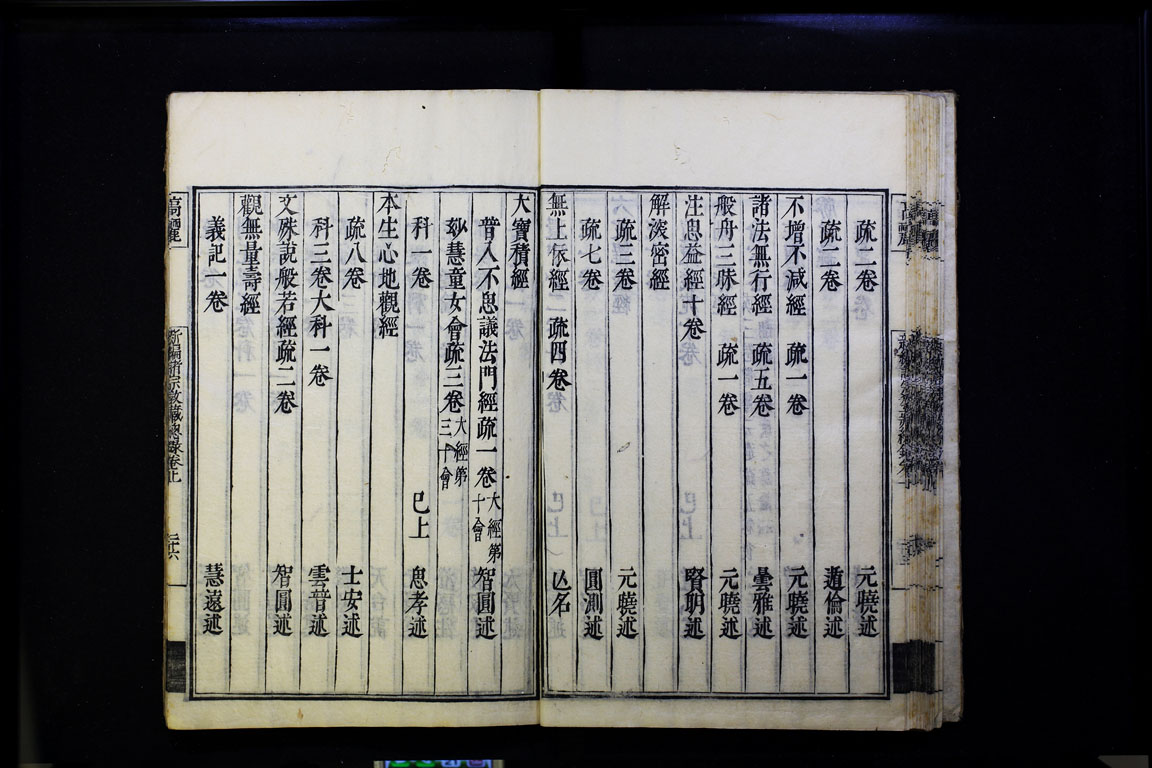 疏二卷 元曉述
疏二卷 遁倫述
不增不減經 疏一卷 元曉述
諸法無行經 疏五卷 曇雅述
般舟三昧經 疏一卷 元曉述
注思益經十卷 賢明述
解深密經
疏三卷 元曉述
疏七卷 圓測述
無上依經 疏四卷 亾名
大寶積經
普入不思議法門經疏一卷 大經第十會 智圓述
玅慧童女會疏三卷 大經第三十會
科一卷 已上 思孝述
本生心地觀經
疏八卷 士安述
科三卷大科一卷 雲普述
文殊說般若經疏二卷 智圓述
觀無量壽經
義記一卷 慧遠述
高麗
新編諸宗教藏總錄卷上